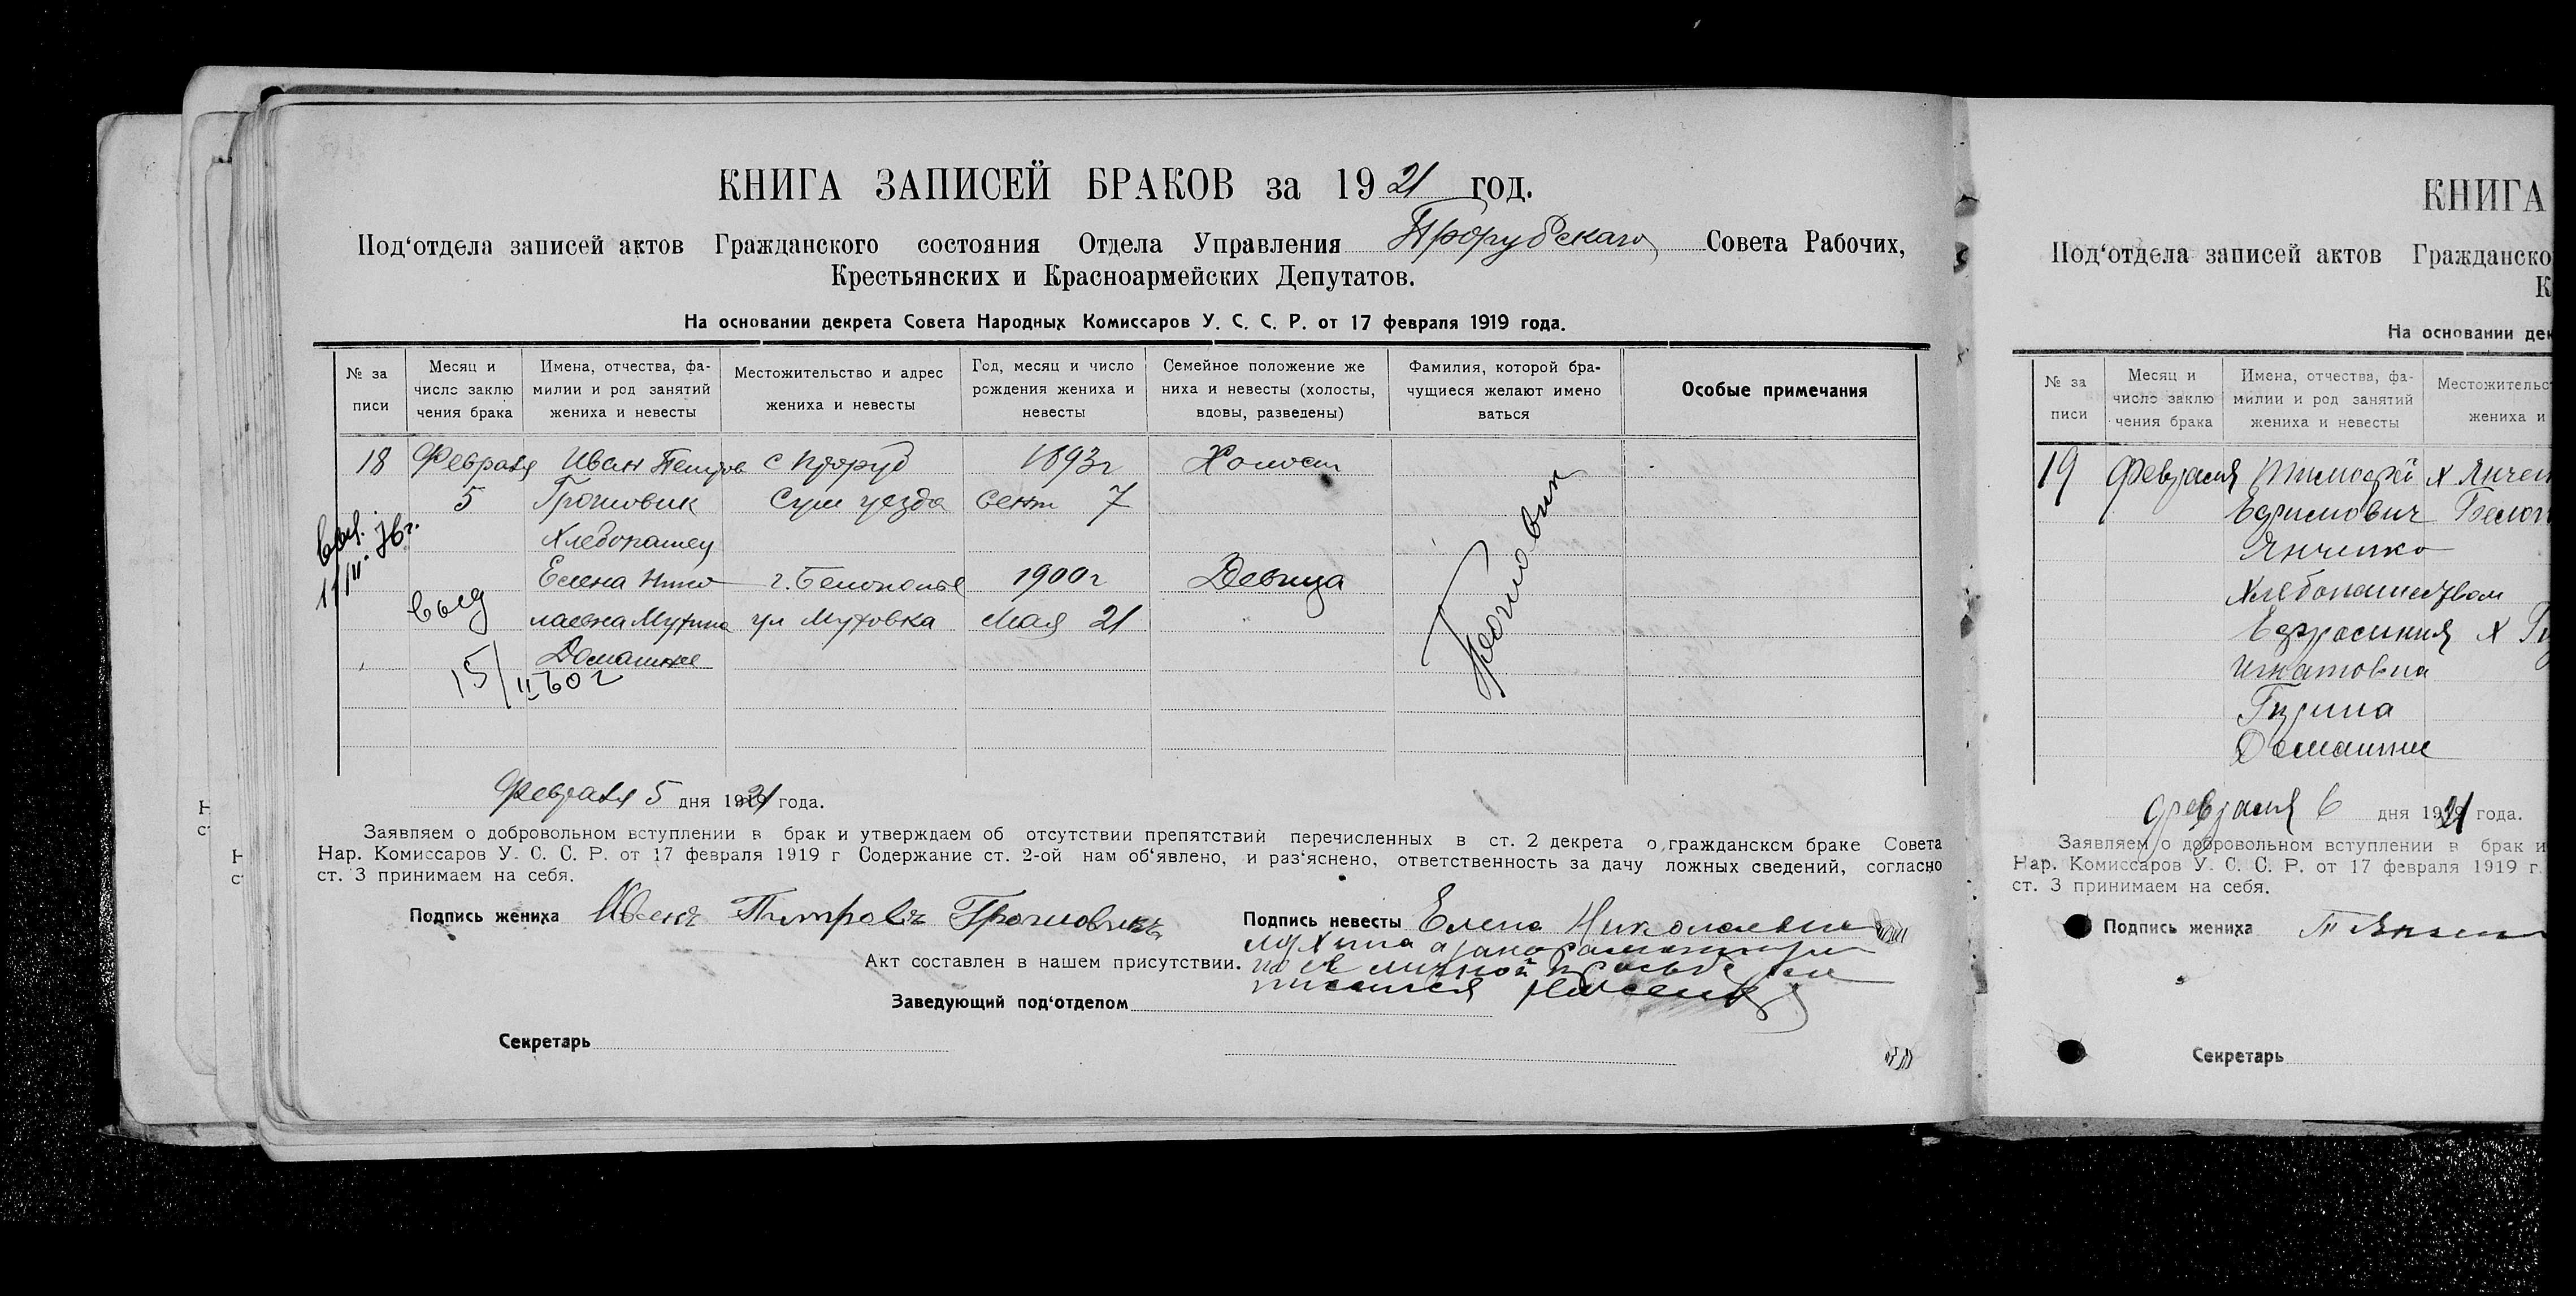 КНИГА ЗАПИСЕЙ БРАКОВ за 1921 год.
Под‘отдела записей актов Гражданского состояния Отдела Управления Прорубскаго Совета Рабочих,
Крестьянских и Красноармейских Депутатов.
На основании декрета Совета Народных Комиссаров У. С. С. Р. от 17 февраля 1919 года.
№ за писи
Месяц и число заклю чения брака
Имена, отчества, фа- милии и род занятий жениха и невесты
Местожительство и адрес жениха и невесты
Год, месяц и число рождения жениха и невесты
Семейное положение же ниха и невесты (холосты, вдовы, разведены)
Фамилия, которой бра- чущиеся желают имено ваться
Особые примечания
18 Февраля Иван Петров с Проруб 1893г Холост
5 Громовик Сум уезда сент 7
Хлебопашец
Елена Нико г. Белополье 1900г Девица
лаевна Мухина ул Мутовка Мая 21
Домашние
Громовик
выд
15/II 60 г
Февраля 5 дня 1921 года.
Заявляем о добровольном вступлении в брак и утверждаем об отсутствии препятствий перечисленных в ст. 2 декрета о гражданском браке Совета
Нар. Комиссаров У. С. С. Р. от 17 февраля 1919 г Содержание ст. 2-ой нам об‘явлено, и раз‘яснено, ответственность за дачу ложных сведений, согласно
ст. 3 принимаем на себя.
Подпись жениха Иванъ Питровъ Громовикъ
Подпись невесты Елена Николаевна
Мухина а
Акт составлен в нашем присутствии.
по ее личной просьбе
Заведующий под‘отделом
Секретарь
КНИГА
Под‘отдела записей актов Гражданско
К
На основании дек
№ за писи
Месяц и число заклю чения брака
Имена, отчества, фа- милии и род занятий жениха и невесты
Местожительст
жениха и
19 Февраля Тимофей х Янчен
6 Ефимович Белоп
Янченко
Хлебопашеством
Ефросиния х
Игнатовна
Гурина
Домашние
Февраля 6 дня 1921 года.
Заявляем о добровольном вступлении в брак и
Нар. Комиссаров У. С. С. Р. от 17 февраля 1919 г.
ст. 3 принимаем на себя.
Подпись жениха
Секретарь